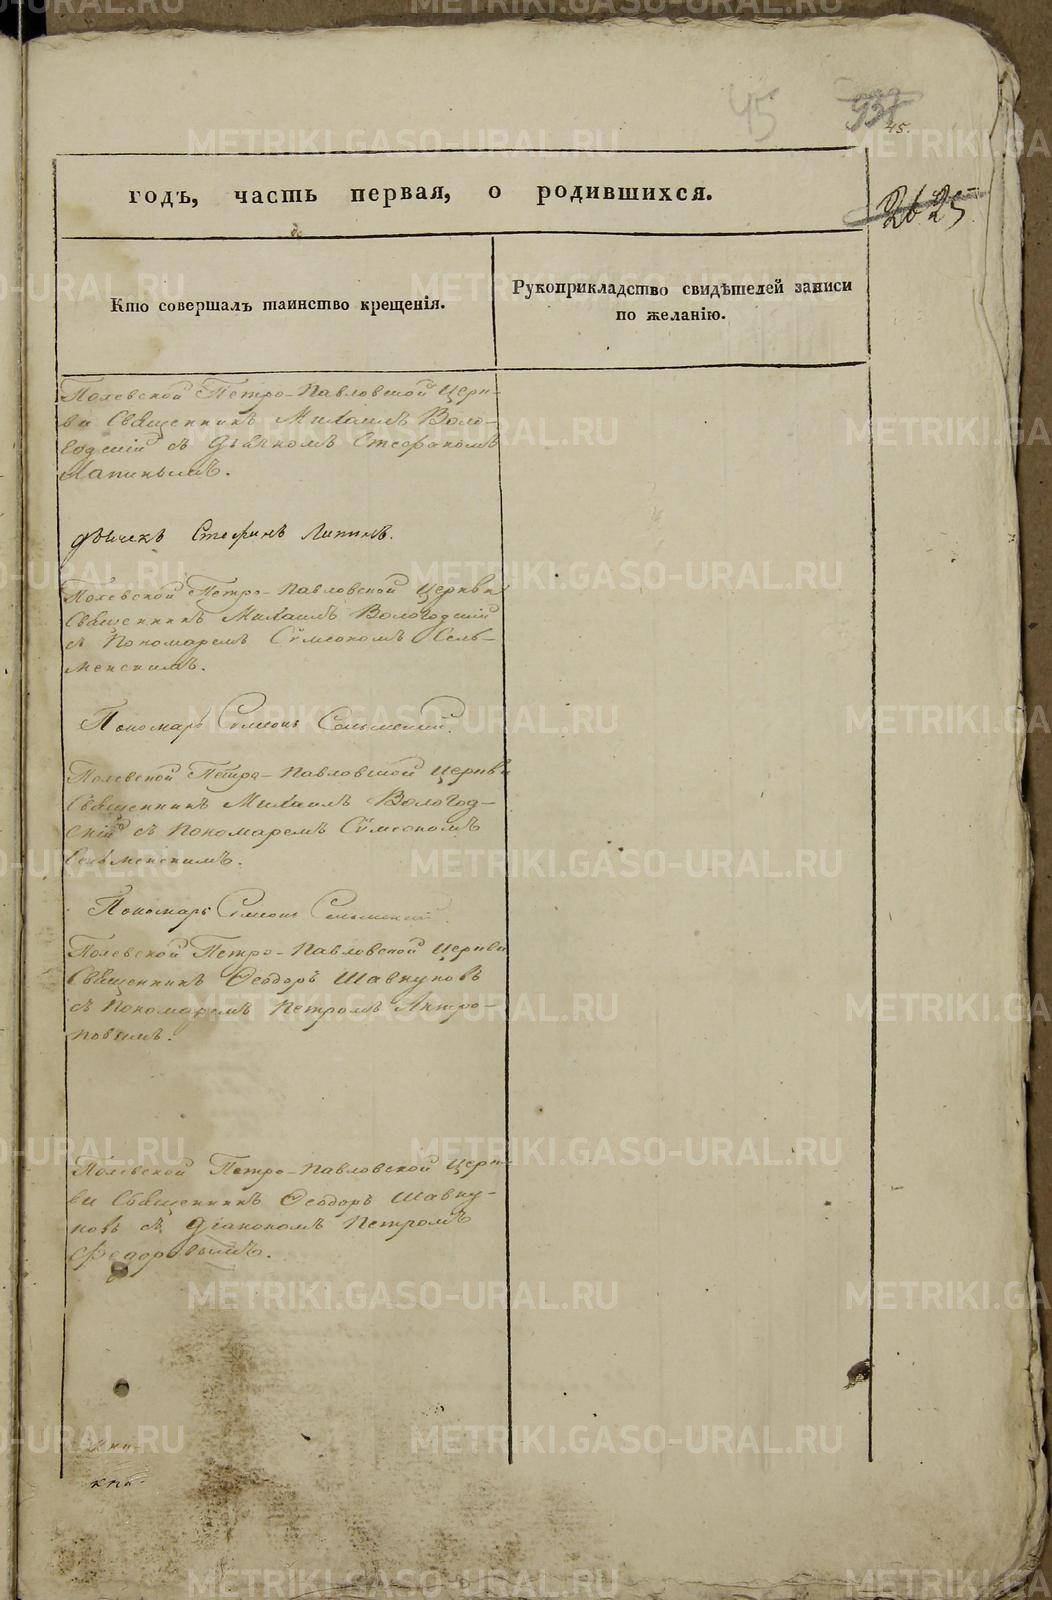 45
45.
годъ, часть первая, о родившихся.
26 25
Кто совершалъ таинство крещенія.
Рукоприкладство свидѣтелей записи
по желанію.
Полевской Петро-Павловской Церк-
ви Священникъ Михаилъ Воло-
годскій съ Дьячкомъ Стефаномъ
Лапинымъ.
дьячекъ Стефанъ Лапинъ.
Полевской Петро-Павловской Церкви
Священникъ Михаилъ Вологодскій
съ Пономаремъ Сѵмеономъ Сель-
менскимъ.
Пономарь Симеонъ Сельменскій.
Полевской Петро-Павловской Церкви
Священникъ Михаилъ Вологод-
скій съ Пономаремъ Сѵмеономъ
Сельменскимъ.
Пономарь Симеонъ Сельменскій.
Полевской Петро-Павловской Церкви
Священникъ Ѳеодоръ Шавкуновъ
съ Пономаремъ Петромъ Антро-
повымъ.
Полевской Петро-Павловской Церк-
ви Священникъ Ѳеодоръ Шавку-
новъ съ Діакономъ Петромъ
Федоровымъ.
METRIKI.GASO-URAL.RU